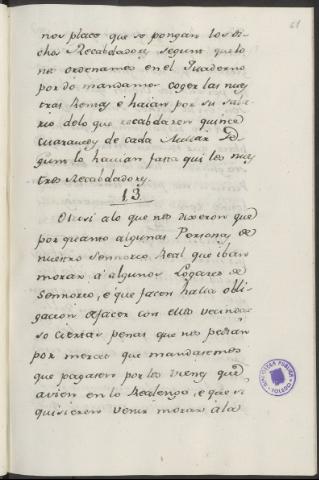 61
nos place que se pongan los di
chos Recabdadores segunt que lo
nos ordenamos en el Quaderno
por do mandamos coger las nues
tras Rentas, e haian por su sala
rio delo que recabdaren quince
maravedis de cada Millar se
gunt lo havian fasta qui los nues
tros Recabdadores.
13
Otrosi alo que nos dixeron que
por quanto algunas Personas de
nuestro Sennorio Real que iban
morar á algunos Logares de
Sennorio, e que facen halla obli
gacion defacer con ellos vecindat
so ciertas penas que nos pedian
por merced que mandasemos
que pagasen por los vienes que
avien en lo Realengo, e que si
quisieren venir morar ala
BIBLIOTECA PUBLICA
TOLEDO